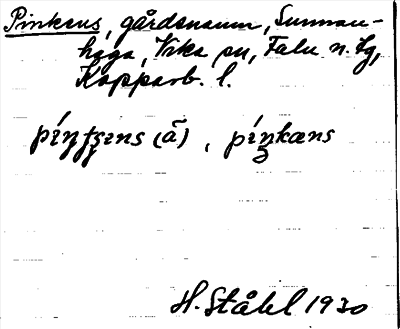 Pinkens, gårdsnamn, Sunnan-
haga, Vika sn, Falu n. tg,
Kopparb. l.
(ä), pi´ŋkæns
H. Ståhl 1930